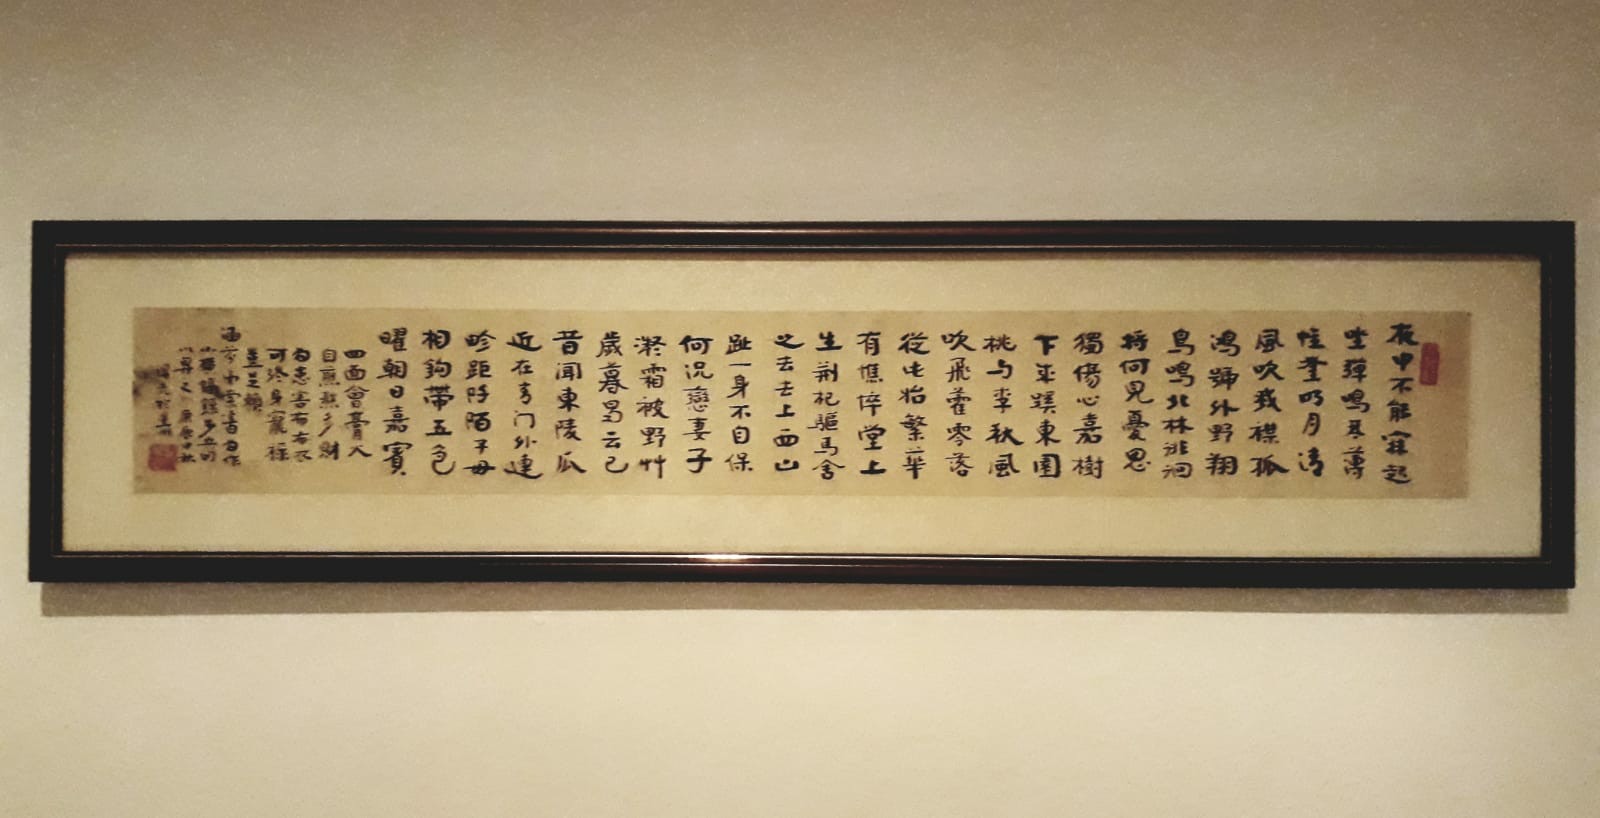 夜中不能寐起
坐彈鳴琴薄
帷鑒明月清
風吹我襟孤
鴻號外野翔
鳥鳴北林徘徊
將何見憂思
獨傷心嘉樹
下成蹊東園
桃与李秋風
吹飛藿零落
從此始繁華
有憔悴堂上
生荊杞驅馬舍
之去去上西山
趾一身不自保
何況戀妻子
凝霜被野艸
歲暮易云已
昔聞東陵瓜
近在青门外連
畛距阡陌子母
相鉤帶五色
曜朝日嘉賓
四面會膏火
自煎熬多財
為患害布衣
可終身寵祿
豈足賴